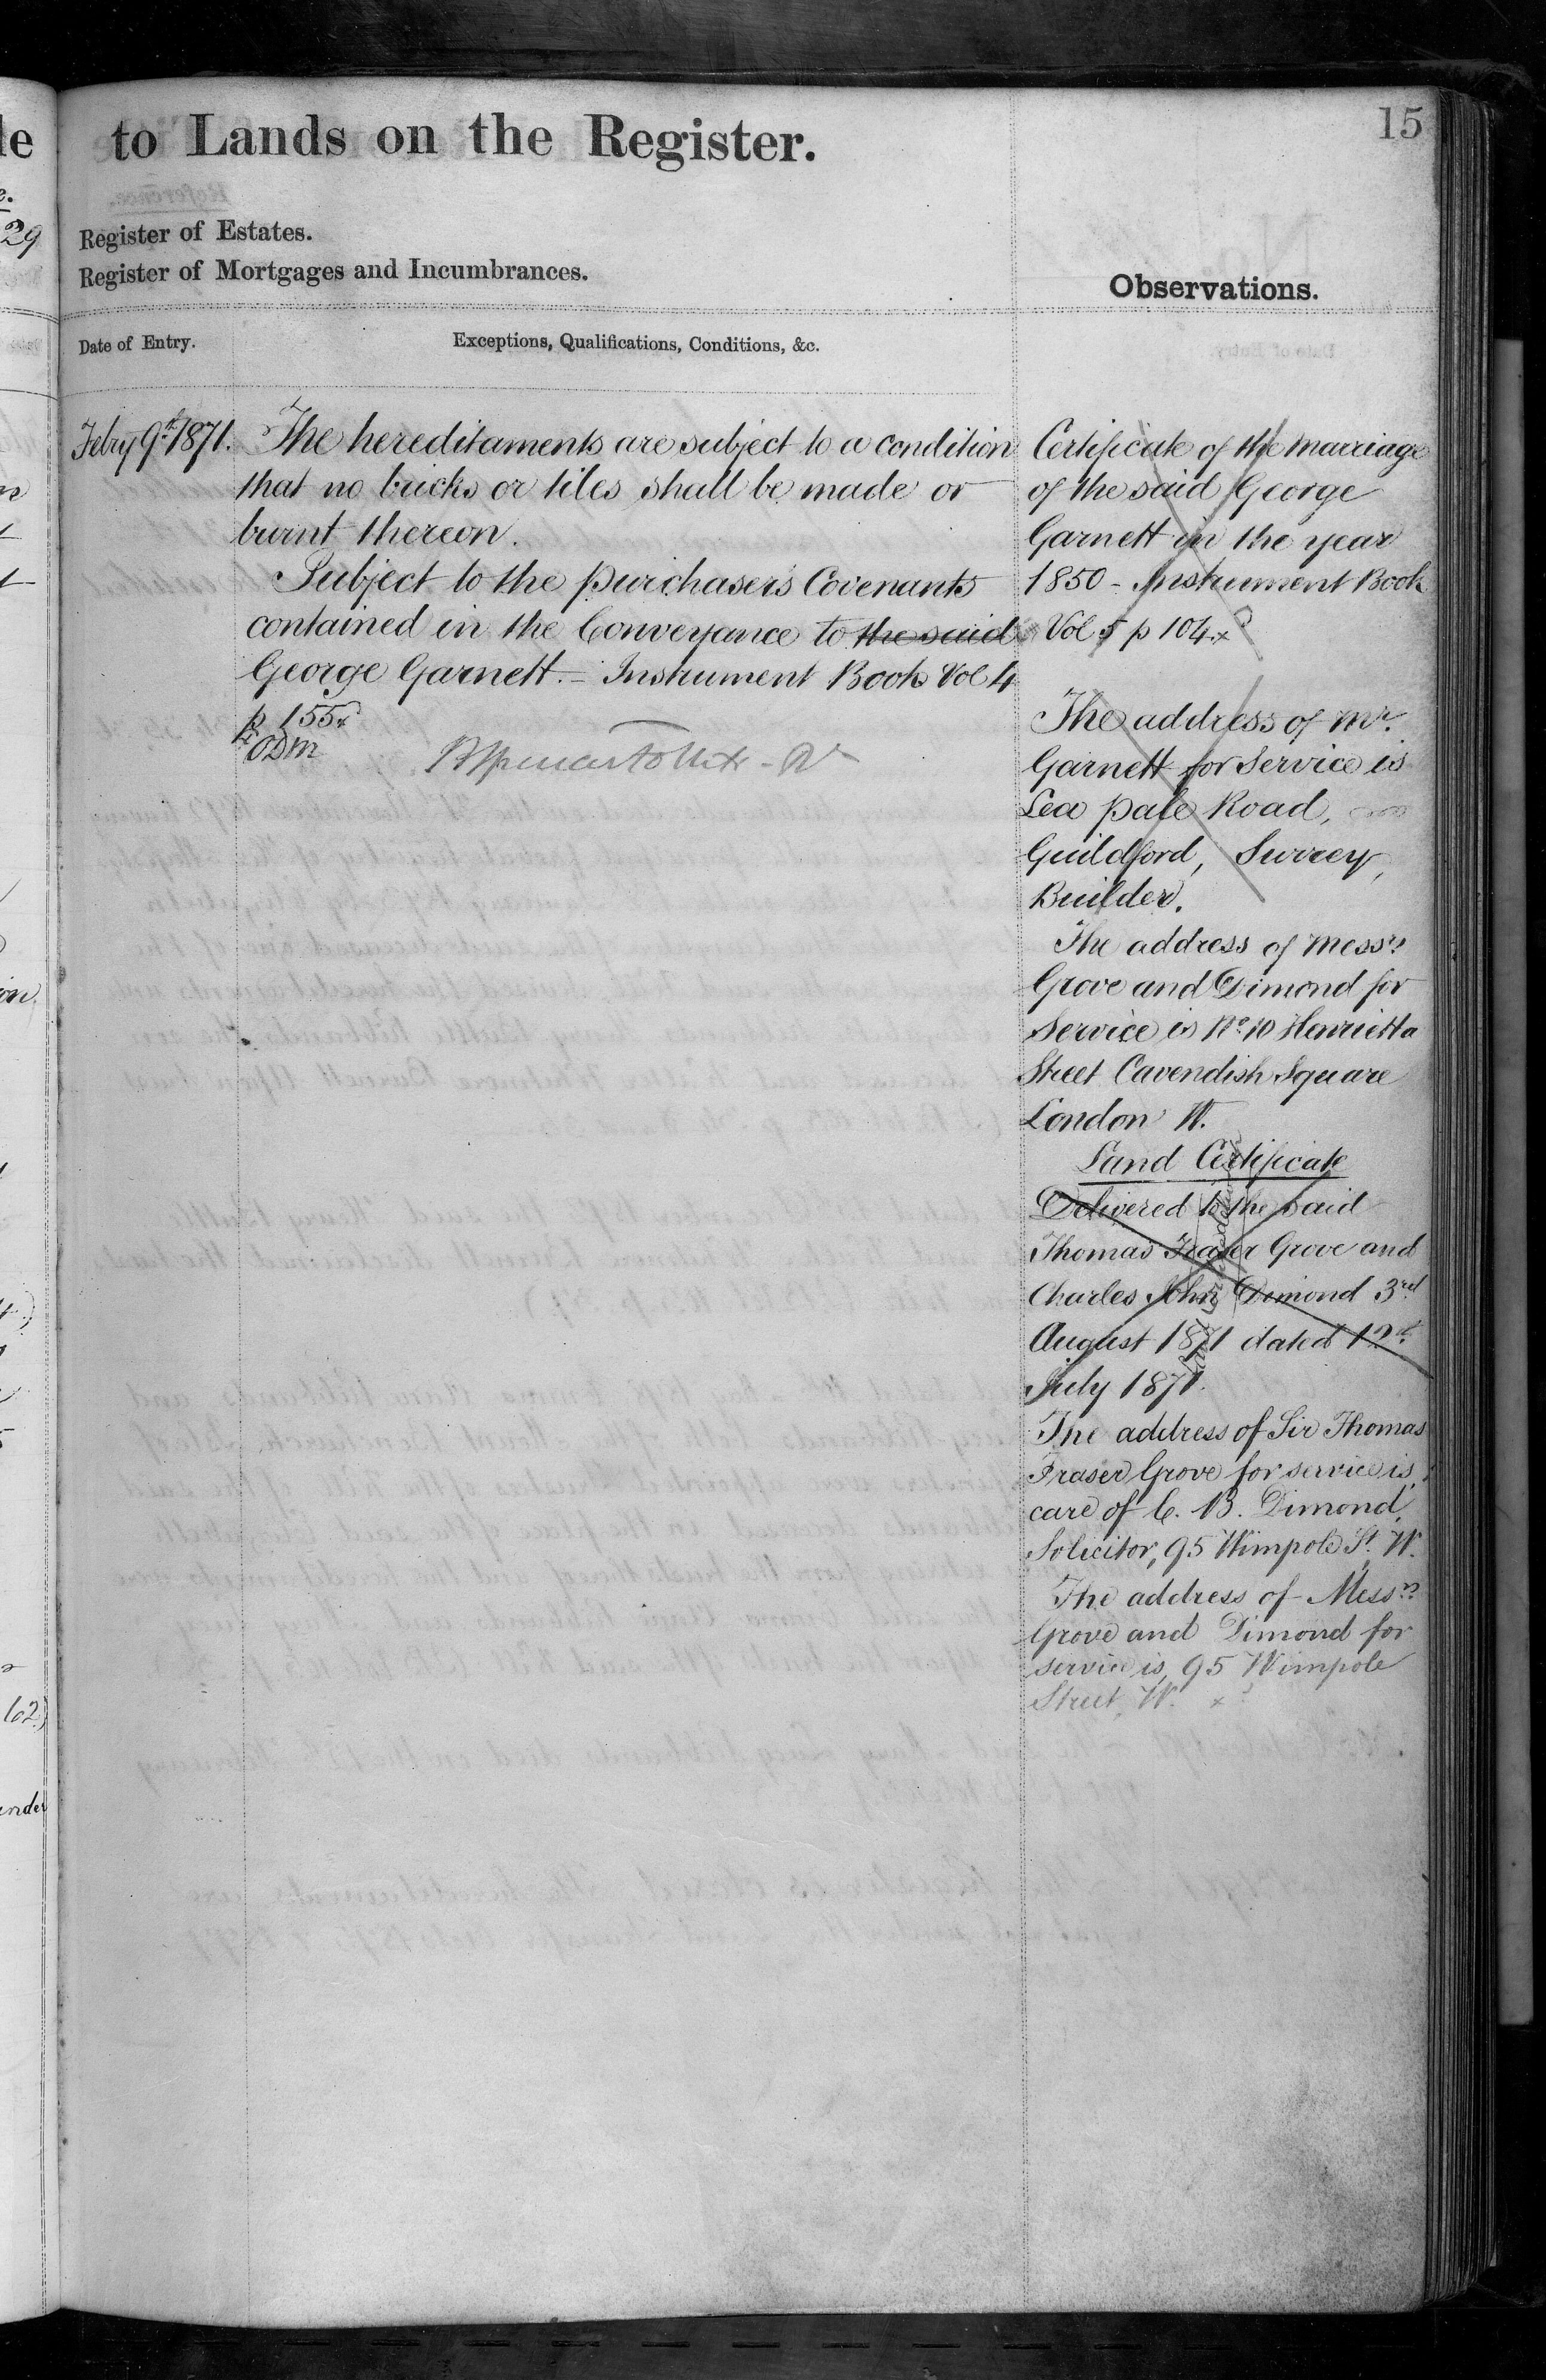 to Lands on the Register.
15
Register of Estates.
Register of Mortgages and Incumbrances.
Observations.
Date of Entry.
Exceptions, Qualifications, Conditions, &c.
Febry 9th 1871.
The hereditaments are subject to a condition
that no bricks or tiles shall be made or
burnt thereon.
Subject to the purchasers Covenants
contained in the Conveyance to the said
George Garnett. – Instrument Book Vol 4
p 155
Certificate of the Marriage
of the said George
Garnett in the year
1850 – Instrument Book
Vol 5 p 104
The address of Mr.
Garnett for Service is
Lea pale Road,
Guildford, Surrey,
Builder.
The address of Messrs
Grove and Dimond for
Service is No. 10 Henrietta
Street Cavendish Square
London W.
Land Certificate
Delivered to the said
Thomas Fraser Grove and
Charles John Dimond 3rd
August 1871 dated 12th
July 1871.
The address of Sir Thomas
Fraser Grove for service is,
care of C. B. Dimond,
Solicitor, 95 Wimpole St. W.
The address of Messrs
Grove and Dimond for
service is, 95 Wimpole
Street, W.
le
29
102)